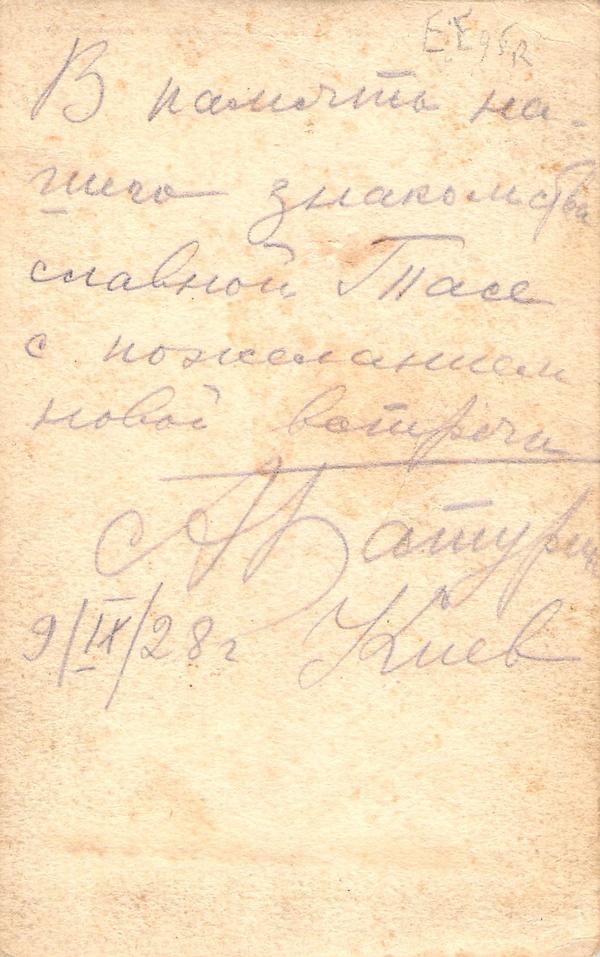 В память на-
шего знакомства
славной Тасе
с пожеланием
новой встречи
АБатурин
9/IX/28 г Киев